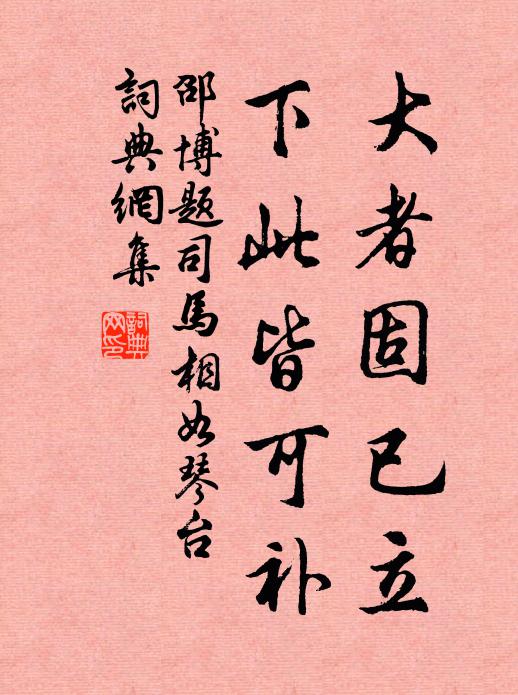 大者固已立
下此皆可补
邵博题司马相如琴台
詞典網集
詞典网印